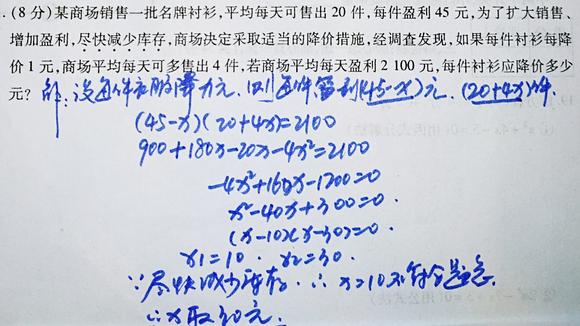 .(8 分)某商场销售一批名牌衬衫,平均每天可售出 20 件,每件盈利 45 元,为了扩大销售、
增加盈利,尽快减少库存,商场决定采取适当的降价措施,经调查发现,如果每件衬衫每降
价 1 元,商场平均每天可多售出 4 件,若商场平均每天盈利 2 100 元,每件衬衫应降价多少
元? 解:设每件衣服降x元. 则每件盈利(45-x)元. (20+4x)件.
(45-x)(20+4x)=2100
900+180x-20x-4x²=2100
-4x²+160x-1200=0
x²-40x+300=0.
(x-10)(x-30)=0.
x1=10. x2=30.
∵尽快减少库存. ∴x=10不符合题意.
∴x取30元.